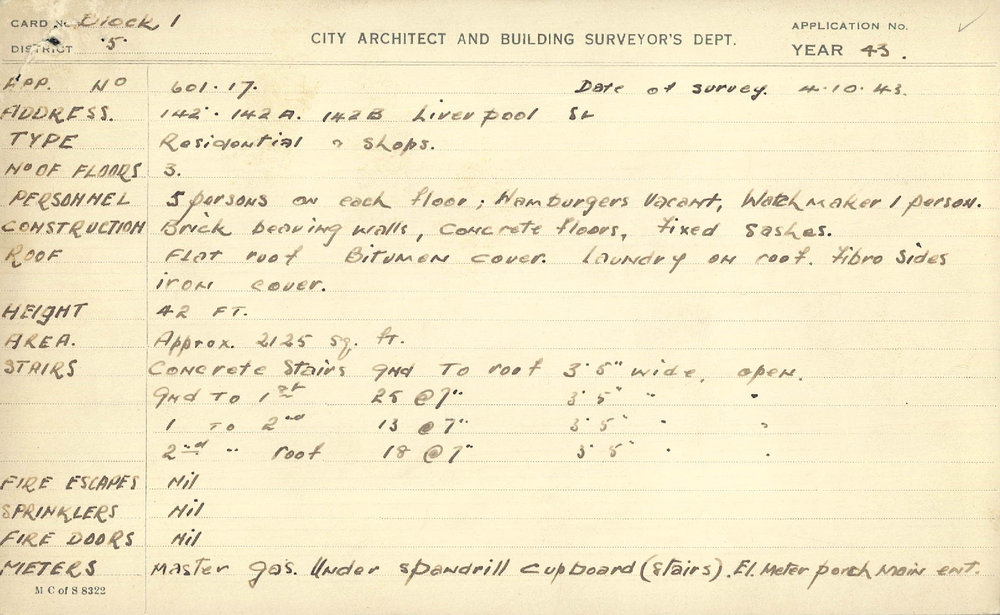 CARD No. Block 1
DISTRICT 5
CITY ARCHITECT AND BUILDING SURVEYOR'S DEPT.
APPLICATION No.
YEAR 43.
APP. No 601.17. Date of survey. 4.10.43.
ADDRESS. 142. 142A. 142B Liverpool St
TYPE Residential & Shops.
No OF FLOORS 3.
PERSONNEL 5 persons on each floor; Hamburgers vacant, Watchmaker 1 person.
CONSTRUCTION Brick bearing walls, Concrete floors, fixed sashes.
ROOF Flat roof Bitumen cover. Laundry on roof. Fibro sides
iron cover.
HEIGHT 42 FT.
AREA. Approx. 2125 sq. ft.
STAIRS Concrete Stairs Gnd To roof 3'5" wide, open.
Gnd To 1st 25 @ 7" 3'5" " "
1 To 2nd 13 @ 7" 3'5" " "
2nd " roof 18 @ 7" 3'5" " "
FIRE ESCAPES Nil
SPRINKLERS Nil
FIRE DOORS Nil
METERS Master gas. Under spandrill cupboard (stairs). El. Meter porch main ent.
M C of S 8322